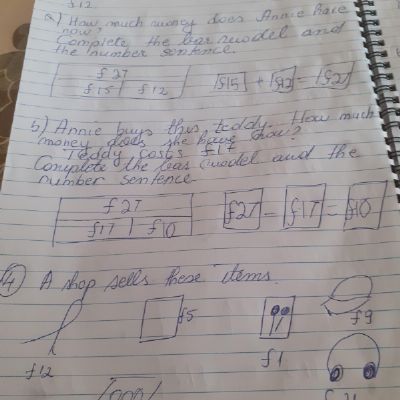 £12
a) How much money does Annie have
now?
Complete the bar model and
the number sentence.
£27
£15 £12 £15 + £12 = £27
b) Annie buys this teddy. How much
money does she have now?
Teddy costs £17
Complete the bar model and the
number sentence.
£27
£17 £10 £27 - £17 = £10
4) A shop sells these items.
£5
£9
£1
£12